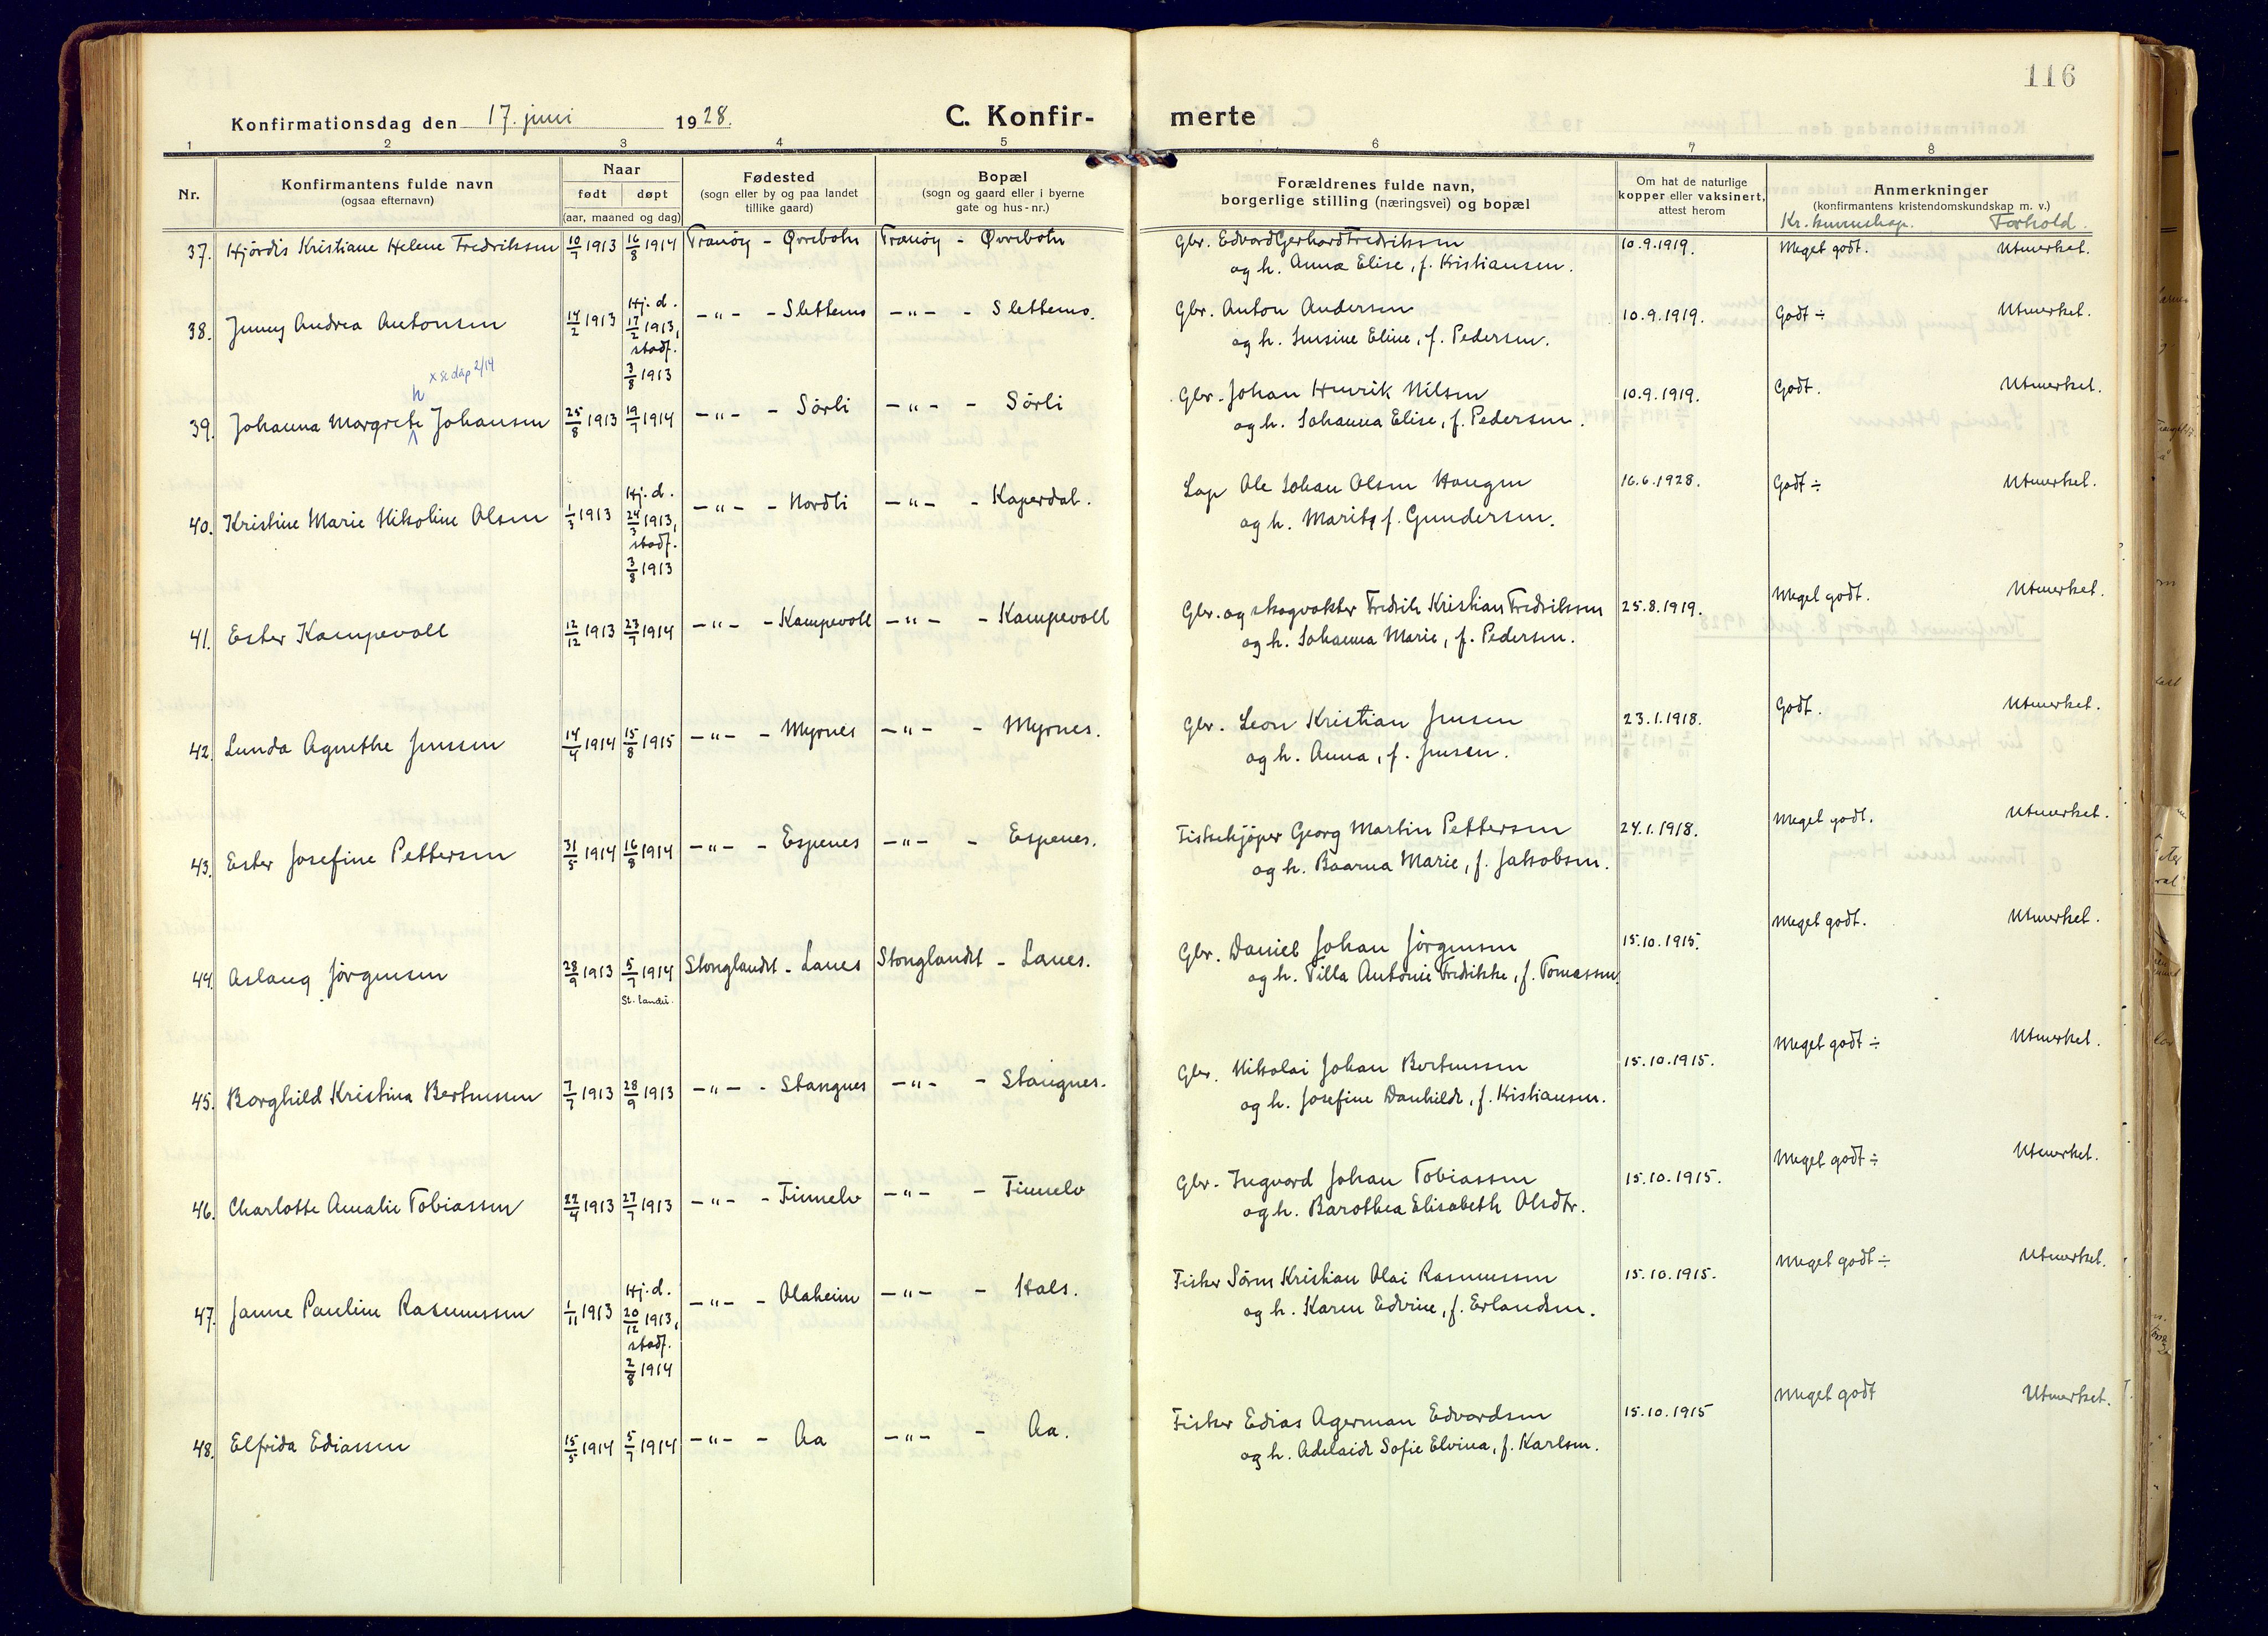 116
Konfirmationsdag den 17. juni 1928.
C. Konfir- merte
1 2 3 4 5 6 7 8
Nr.
Konfirmantens fulde navn
(ogsaa efternavn)
Naar
født døpt
(aar, maaned og dag)
Fødested
(sogn eller by og paa landet
tillike gaard)
Bopæl
(sogn og gaard eller i byerne
gate og hus-nr.)
Forældrenes fulde navn,
borgerlige stilling (næringsvei) og bopæl
Om hat de naturlige
kopper eller vaksinert,
attest herom
Anmerkninger
(konfirmantens kristendomskundskap m. v.)
Kr. kunnskap. Forhold.
37. Hjördis Kristiane Helene Fredriksen 10/7 1913 16/8 1914 Tranöy - Øvrebotn Tranöy - Øvrebotn Gbr. Edvard Gerhard Fredriksen 10.9.1919. Meget godt. Utmerket.
og h. Anna Elise, f. Kristiansen.
38. Jenny Andrea Antonsen 14/2 1913 Hj. d. 17/2 1913, stadf. 3/8 1913 -"- - Slettemo -"- - Slettemo. Gbr. Anton Andersen 10.9.1919. Godt ÷ Utmerket.
og h. Jensine Eline, f. Pedersen.
x se dåp 2/14
h
39. Johanna Margrete Johansen 25/8 1913 19/7 1914 -"- - Sörli -"- - Sörli Gbr. Johan Henrik Nilsen 10.9.1919. Godt. Utmerket.
og h. Johanna Elise, f. Pedersen.
40. Kristine Marie Nikoline Olsen 1/3 1913 Hj. d. 24/3 1913, stadf. 3/8 1913 -"- - Nordli -"- - Kaperdal. Lap Ole Johan Olsen Haugen 16.6.1928. Godt ÷ Utmerket.
og h. Marit, f. Gundersen.
41. Ester Kampevoll 12/12 1913 23/7 1914 -"- - Kampevoll -"- - Kampevoll Gbr. og skogvokter Fredrik Kristian Fredriksen 25.8.1919. Meget godt. Utmerket.
og h. Johanna Marie, f. Pedersen.
42. Lunda Agnethe Jensen 14/4 1914 15/8 1915 -"- - Myrnes -"- - Myrnes. Gbr. Leon Kristian Jensen 23.1.1918. Godt. Utmerket.
og h. Anna, f. Jensen.
43. Ester Josefine Pettersen 31/5 1914 16/8 1914 -"- - Espenes -"- - Espenes. Fiskekjöper Georg Martin Pettersen 24.1.1918. Meget godt. Utmerket.
og h. Baarna Marie, f. Jakobsen.
44. Aslaug Jörgensen 28/9 1913 5/7 1914 St. landet. Stonglandet - Lanes Stonglandet - Lanes. Gbr. Daniel Johan Jörgensen 15.10.1915. Meget godt. Utmerket.
og h. Tilla Antonie Fredrikke, f. Tomassen.
45. Borghild Kristina Berntsen 7/7 1913 28/9 1913 -"- - Stangnes -"- - Stangnes. Gbr. Nikolai Johan Berntsen 15.10.1915. Meget godt ÷ Utmerket.
og h. Josefine Danhilde, f. Kristiansen.
46. Charlotte Amalie Tobiassen 22/4 1913 27/7 1913 -"- - Finnelv -"- - Finnelv Gbr. Ingvard Johan Tobiassen 15.10.1915. Meget godt ÷ Utmerket.
og h. Barothea Elisabeth Olsdtr.
47. Janne Pauline Rasmussen 1/11 1913 Hj. d. 20/12 1913, stadf. 2/8 1914 -"- - Olaheim -"- - Hals. Fisker Sören Kristian Olai Rasmussen 15.10.1915. Meget godt ÷ Utmerket.
og h. Karen Edvine, f. Erlandsen.
48. Elfrida Ediassen 15/5 1914 5/7 1914 -"- - Aa -"- - Aa. Fisker Edias Agerman Edvardsen 15.10.1915 Meget godt Utmerket.
og h. Adelaide Sofie Elvina, f. Karlsen.